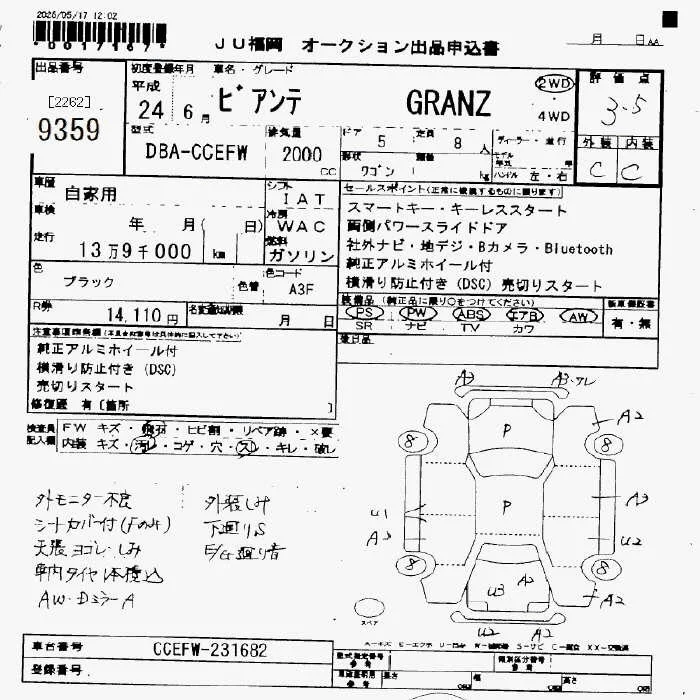 2026/05/17 12:02
*0017167*
JU福岡 オークション出品申込書
月 日 AA
出品番号
[2262]
9359
初度登録年月
平成
24年 6月
車名・グレード
ビアンテ GRANZ
2WD
・
4WD
評価点
3.5
外装 内装
C C
型式
DBA-CCEFW
排気量
2000
CC
ドア 5
定員 8人
形状 ワゴン
kg
ディーラー・並行
モデル
年式
ハンドル 左・右
車歴
自家用
車検
年 月( 日)
走行
13万9千000 km
シフト
IAT
冷房
WAC
燃料
ガソリン
セールスポイント(正常に機能するものに限ります)
スマートキー・キーレススタート
両側パワースライドドア
社外ナビ・地デジ・Bカメラ・Bluetooth
純正アルミホイール付
横滑り防止付き(DSC) 売切りスタート
色
ブラック
色替
色コード
A3F
R券
14,110円
名変書類期限
月 日
装備品 (純正品に限り○をつけてください)
PS PW ABS エアB AW
SR ナビ TV カワ
新車保証書
有・無
後日品
注意事項申告欄
純正アルミホイール付
横滑り防止付き(DSC)
売切りスタート
修復歴 有〔箇所 〕
検査員
記入欄
FW キズ・飛石・ヒビ割・リペア跡・×要
内装 キズ・汚レ・コゲ・穴・スレ・キレ・破レ
外モニター不良
シートカバー付(Fのみ)
天張ヨゴレ・しみ
車内タイヤ1本積込
AW・Dミラー A
外装しみ
下廻りS
E/G廻り音
A3
A3・ワレ
A2
8
8
P
P
U1
A3
A3
U2
8
8
U3 A2
A2
U2 A2
スペア
車台番号
CCEFW-231682
登録番号
型式指定番号
参考
類別区分番号
参考
長さ
cm
幅
cm
高さ
cm